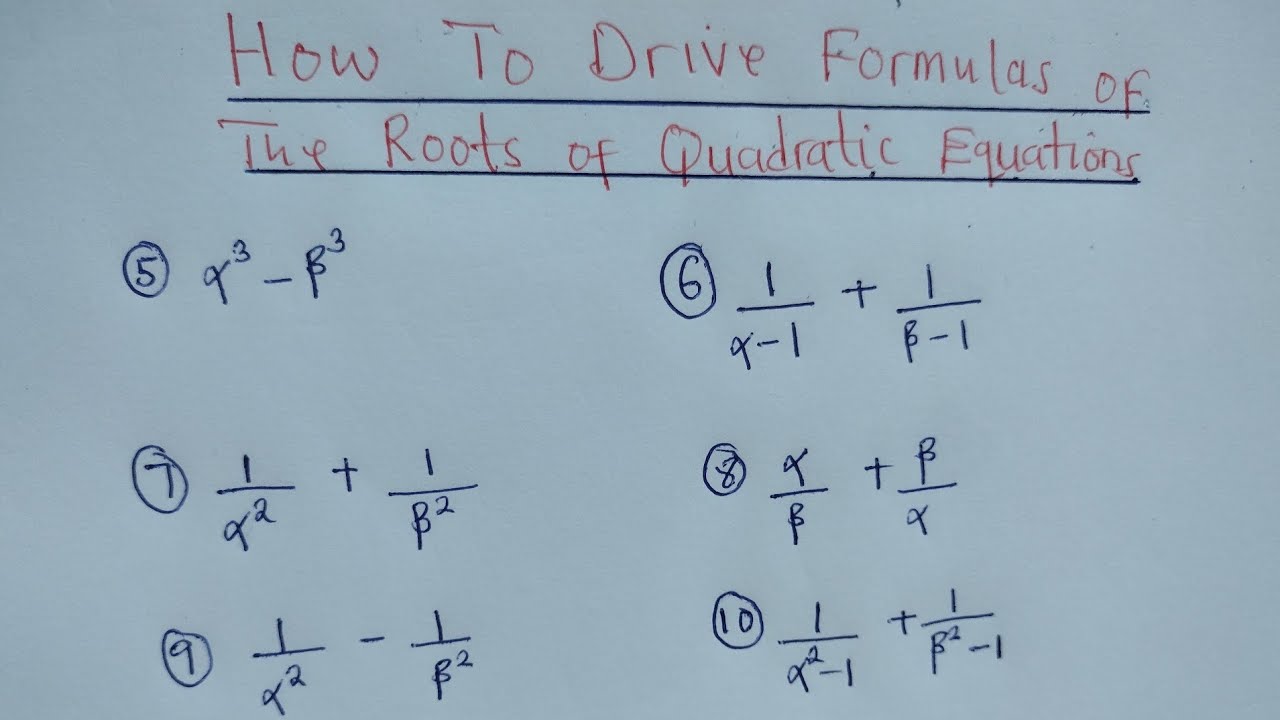 How To Drive Formulas of
The Roots of Quadratic Equations
⑤ α³ − β³
⑥ 1/(α−1) + 1/(β−1)
⑦ 1/α² + 1/β²
⑧ α/β + β/α
⑨ 1/α² − 1/β²
⑩ 1/(α²−1) + 1/(β²−1)